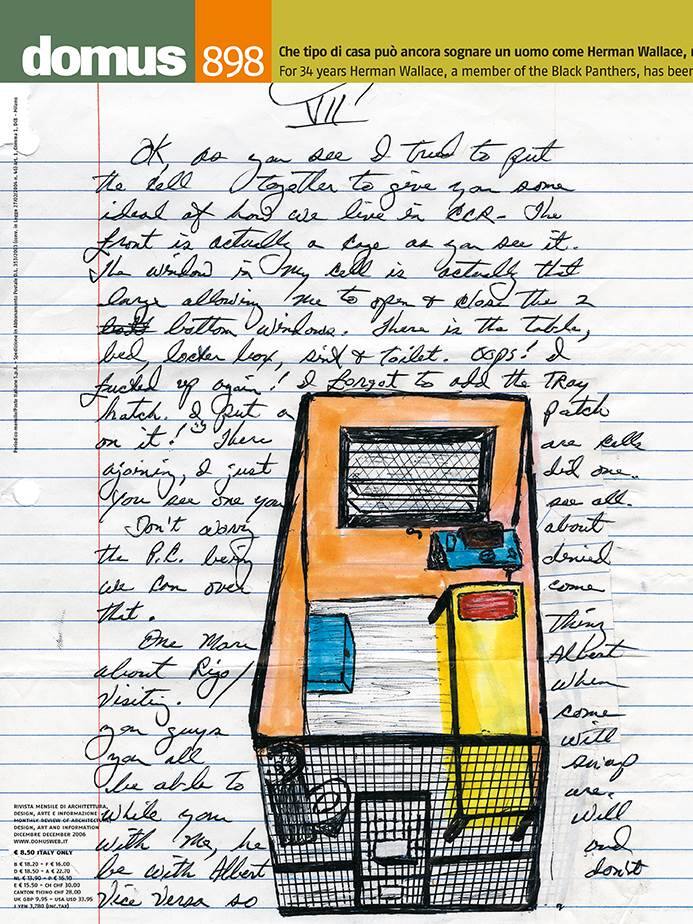 domus 898
Che tipo di casa può ancora sognare un uomo come Herman Wallace,
For 34 years Herman Wallace, a member of the Black Panthers, has been
VII
OK, as you see I tried to put
the cell together to give you some
ideal of how we live in CCR- The
front is actually a cage as you see it.
The window in my cell is actually that
large allowing me to open & close the 2
bottom windows. There is the table,
bed, locker box, sink & toilet. Oops! I
fucked up again! I forgot to add the tray
hatch. I put a patch
on it! There are cells
ajoining, I just did one.
You see one you see all.
Don't worry about
the P.C. being denied
we can over come
that.
One more thing
about Rigo/ Albert
Visiting. when
you guys come
you all will
be able to swap
while you are.
with me, he will
be with Albert and
Vice versa so don't
RIVISTA MENSILE DI ARCHITETTURA,
DESIGN, ARTE E INFORMAZIONE
MONTHLY REVIEW OF ARCHITECTURE
DESIGN, ART AND INFORMATION
DICEMBRE DECEMBER 2006
WWW.DOMUSWEB.IT
€ 8.50 ITALY ONLY
B € 18.20 - F € 16.00
D € 18.50 - A € 22.70
NL € 13.90 - P € 16.10
E € 15.50 - CH CHF 30.00
CANTON TICINO CHF 28.00
UK GBP 9,95 - USA USD 33.95
J YEN 3,780 (INC.TAX)